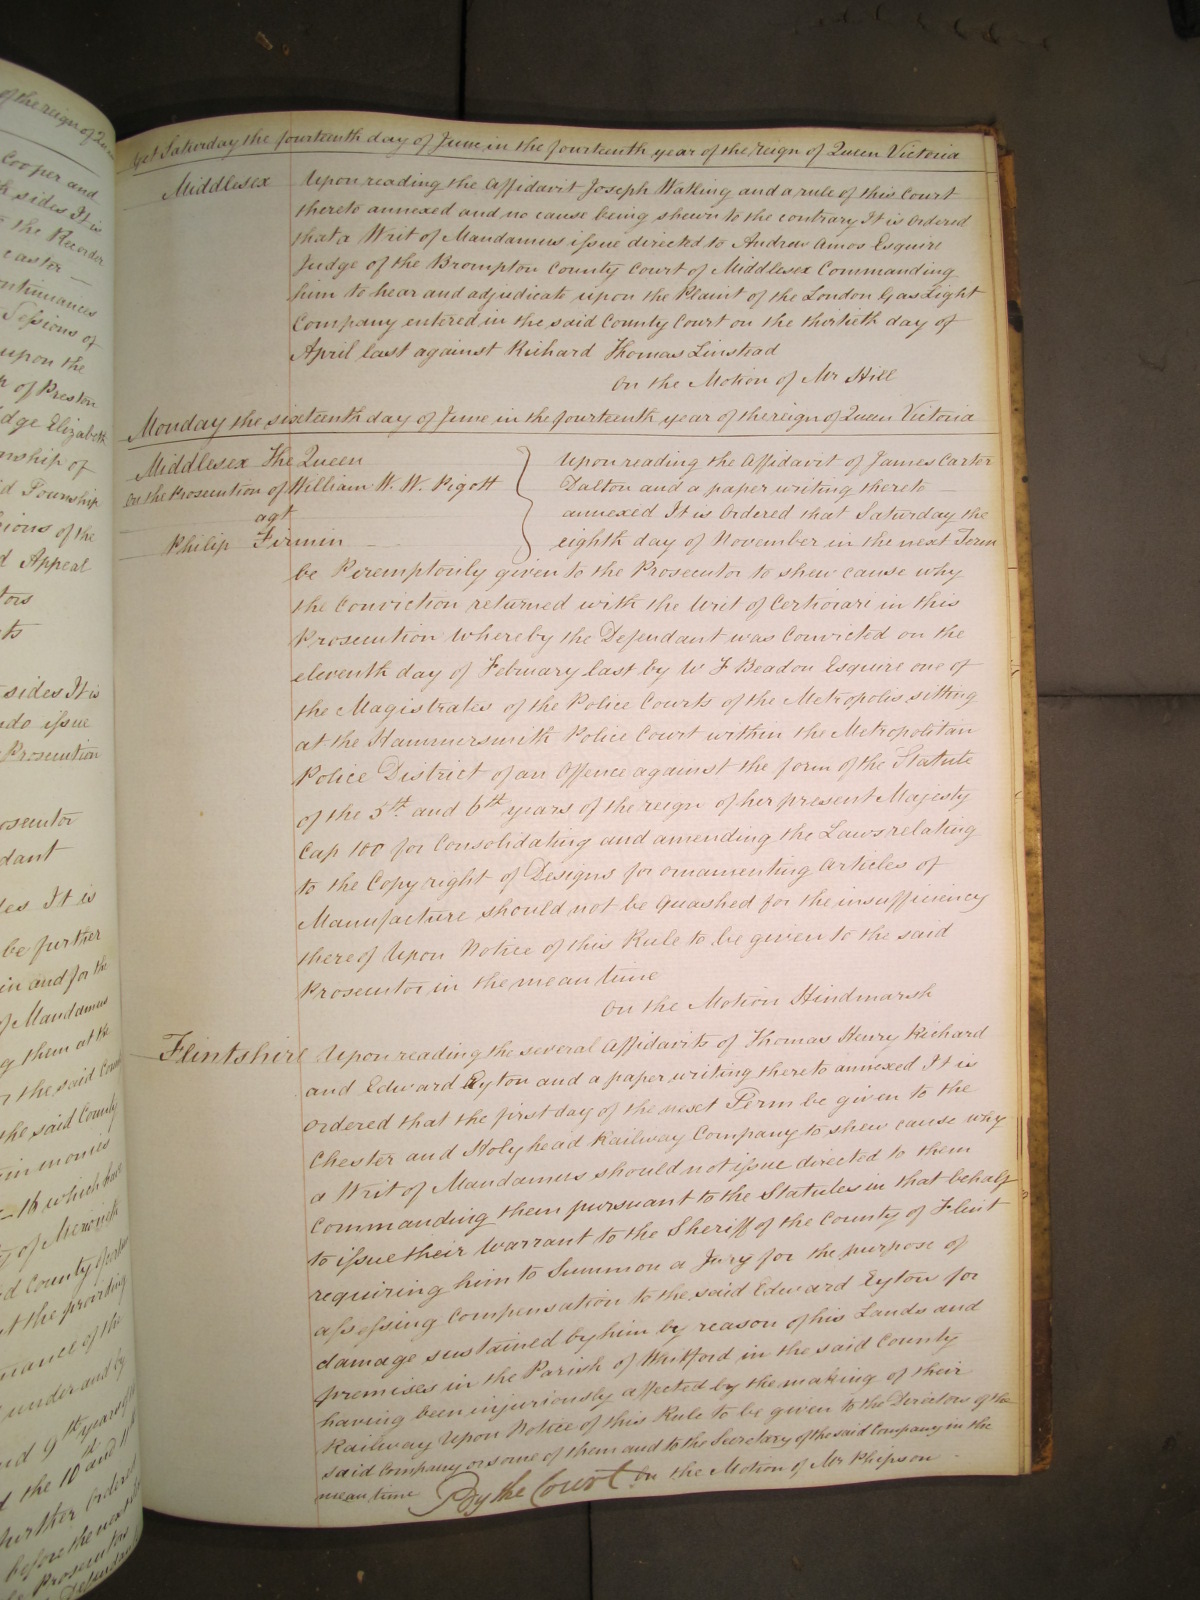 of the reign of Queen
Cooper and
sides It is
the Recorder
caster
continuances
Sessions of
upon the
of Preston
Judge Elizabeth
Township of
said Township
Sessions of the
Appeal
sides It is
issue
Prosecution
It is
be further
in and for the
of Mandamus
them at the
the said
the said County
which
of
County
at the
under and by
9th years of
the 10th and 11th
further Ordered
before the next
Prosecutors
Yet Saturday the fourteenth day of June in the fourteenth year of the reign of Queen Victoria
Middlesex Upon reading the Affidavit Joseph Watling and a rule of this Court
thereto annexed and no cause being shewn to the contrary It is Ordered
that a Writ of Mandamus issue directed to Andrew Amos Esquire
Judge of the Brompton County Court of Middlesex Commanding
him to hear and adjudicate upon the Plaint of the London Gas Light
Company entered in the said County Court on the thirtieth day of
April last against Richard Thomas Linstead
On the Motion of Mr Hill
Monday the sixteenth day of June in the fourteenth year of the reign of Queen Victoria
Middlesex The Queen
on the Prosecution of William W. W. Pigott
agt
Philip Firmin
Upon reading the Affidavit of James Carter
Dalton and a paper writing thereto
annexed It is Ordered that Saturday the
eighth day of November in the next Term
be Peremptorily given to the Prosecutor to shew cause why
the Conviction returned with the Writ of Certiorari in this
Prosecution whereby the Defendant was Convicted on the
eleventh day of February last by W F Beadon Esquire one of
the Magistrates of the Police Courts of the Metropolis sitting
at the Hammersmith Police Court within the Metropolitan
Police District of an Offence against the form of the Statute
of the 5th and 6th years of the reign of her present Majesty
Cap 100 for Consolidating and amending the Laws relating
to the Copyright of Designs for ornamenting Articles of
Manufacture should not be quashed for the insufficiency
thereof Upon Notice of this Rule to be given to the said
Prosecutor in the mean time
On the Motion Hindmarsh
Flintshire Upon reading the several Affidavits of Thomas Henry Richard
and Edward Eyton and a paper writing thereto annexed It is
ordered that the first day of the next Term be given to the
Chester and Holyhead Railway Company to shew cause why
a Writ of Mandamus should not issue directed to them
Commanding them pursuant to the Statutes in that behalf
to issue their Warrant to the Sheriff of the County of Flint
requiring him to Summon a Jury for the purpose of
assessing Compensation to the said Edward Eyton for
damage sustained by him by reason of his Lands and
premises in the Parish of Whitford in the said County
having been injuriously affected by the making of their
Railway Upon Notice of this Rule to be given to the Directors of the
said Company or some of them and to the Secretary of the said Company in the
mean time By the Court On the Motion of Mr Phipson